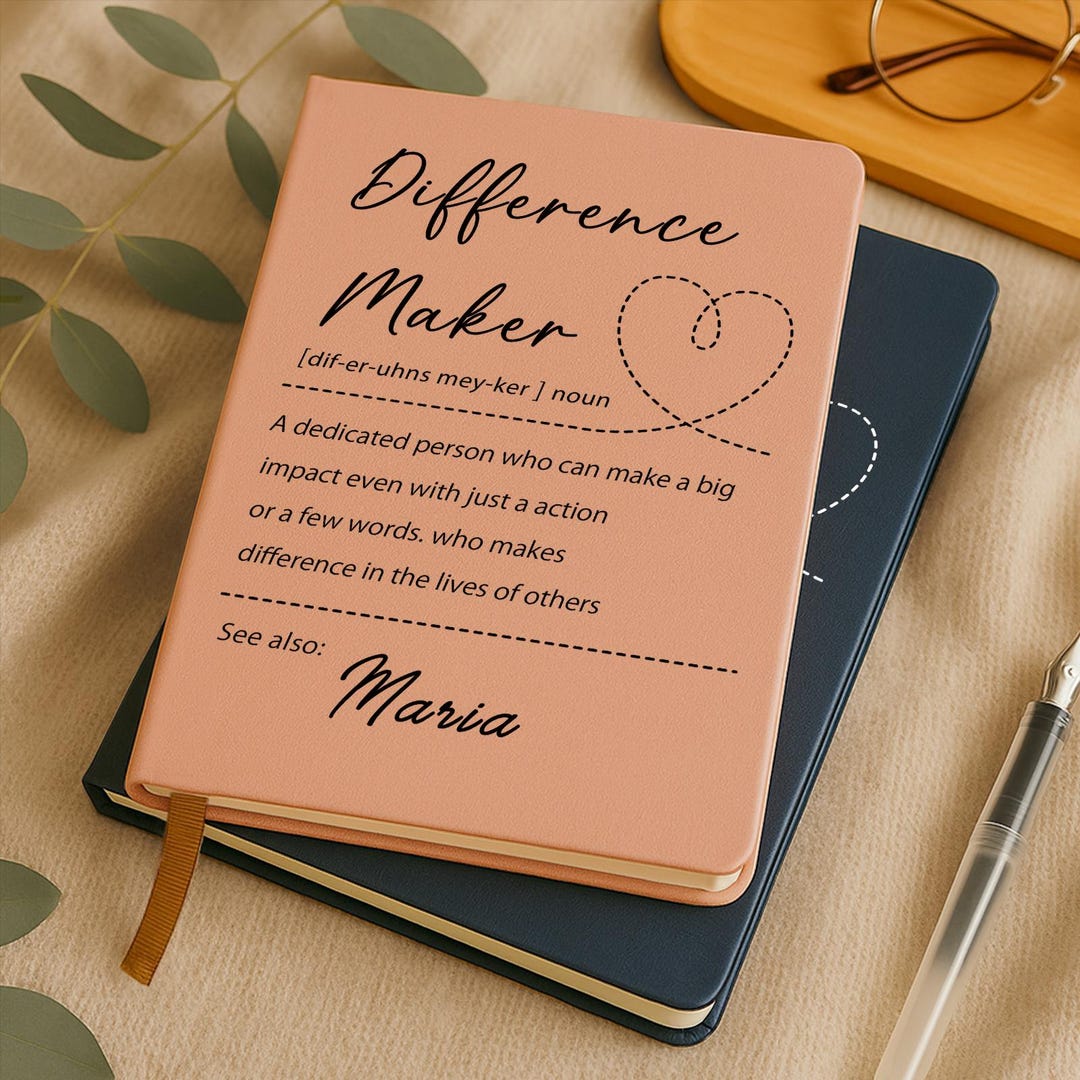 Difference
Maker
[dif-er-uhns mey-ker ] noun
A dedicated person who can make a big
impact even with just a action
or a few words. who makes
difference in the lives of others
See also:
Maria